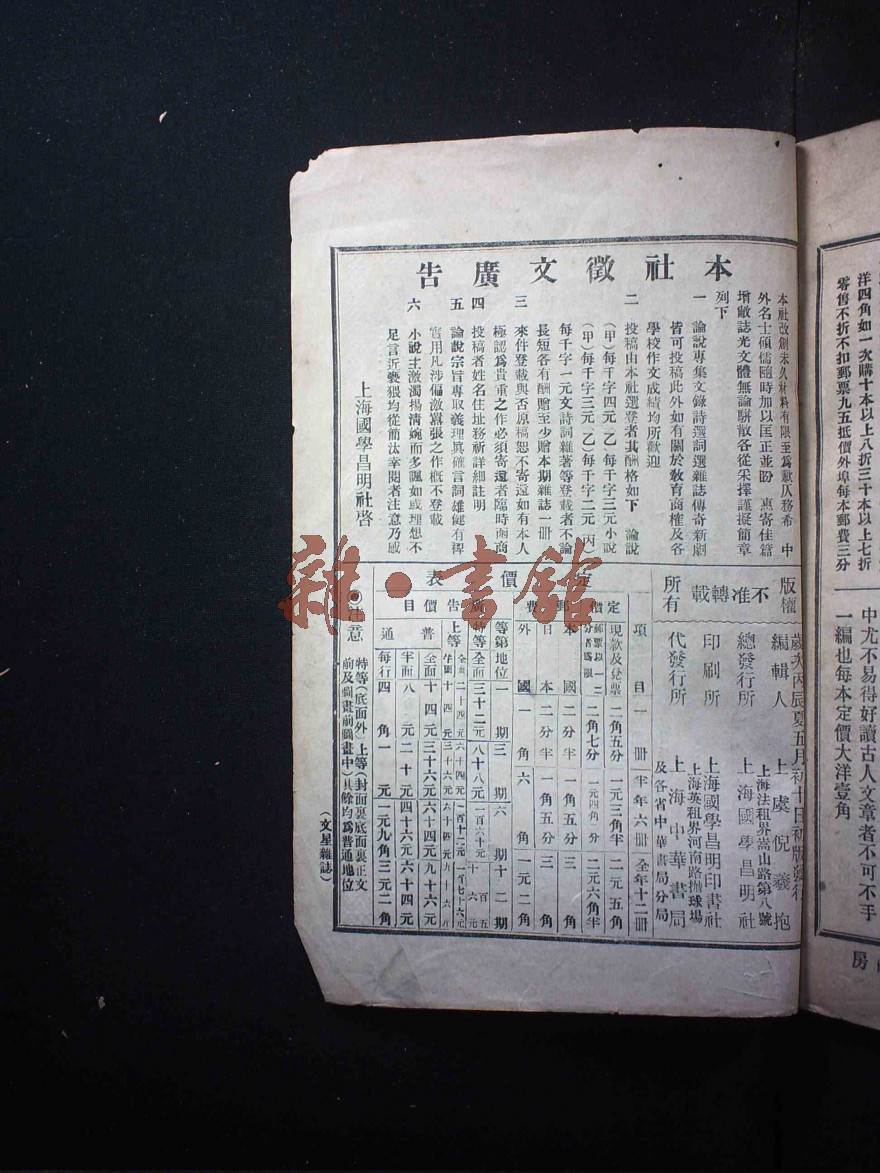 本社徵文廣告
本社改創未久材料有限至為歉仄務希　中
外名士碩儒隨時加以匡正並盼　惠寄佳篇
增敝誌光文體無論駢散各從采擇謹擬簡章
列下
一　論說專集文錄詩選詞選雜誌傳奇新劇
皆可投稿此外如有關於教育商榷及各
學校作文成績均所歡迎
二　投稿由本社選登者其酬格如下　論說
（甲）每千字四元（乙）每千字三元小說
（甲）每千字三元（乙）每千字二元（丙）
每千字一元文詩詞雜著等登載者不論
長短各有酬贈至少贈本期雜誌一冊
三　來件登載與否原稿恕不寄還如有本人
極認為貴重之作必須寄還者臨時函商
四　投稿者姓名住址務祈詳細註明
五　論說宗旨專取義理眞確言詞雄健有裨
實用凡涉偏激囂張之作概不登載
六　小說主激濁揚清婉而多諷如或理想不
足言近褻猥均從簡汰幸閱者注意乃感
上海國學昌明社啓
版權所有
不准轉載
歲次丙辰夏五月初十日初版發行
編輯人　上虞倪羲抱
總發行所　上海法租界嵩山路第八號
上海國學昌明社
印刷所　上海國學昌明印書社
上海英租界河南路拋球場
代發行所　上海中華書局
及各省中華書局分局
定價表
項目　一冊　半年六冊　全年十二冊
定價　現款及兌票　二角五分　一元三角半　二元五角
郵票以一二分者為限　二角七分　一元四角　分　二元六角半
郵費　本國　二分半　一角五分　三角
日本　二分半　一角五分　三角
外國　一角　六角　一元二角
廣告價目
等第　地位　一期　三期　六期　十二期
特等　全面　三十二元　八十八元　一百六十元
上等　全面　二十四元　六十四元　一百十二元　一百七十六元
半面　十四元　三十六元　六十四元　九十六元
普通　全面　十四元　三十六元　六十四元　九十六元
半面　八元　二十元　四十六元　六十四元
每行　四角　一元　一元九角　三元二角
◉注意　特等（底面外）上等（封面裏底面裏正文
前及圖畫前圖畫中）其餘均為普通地位
（文星雜誌）
洋四角如一次購十本以上八折三十本以上七折
零售不折不扣郵票九五抵價外埠每本郵費三分
中尤不易得好讀古人文章者不可不手
一編也每本定價大洋壹角
房
雜·書館